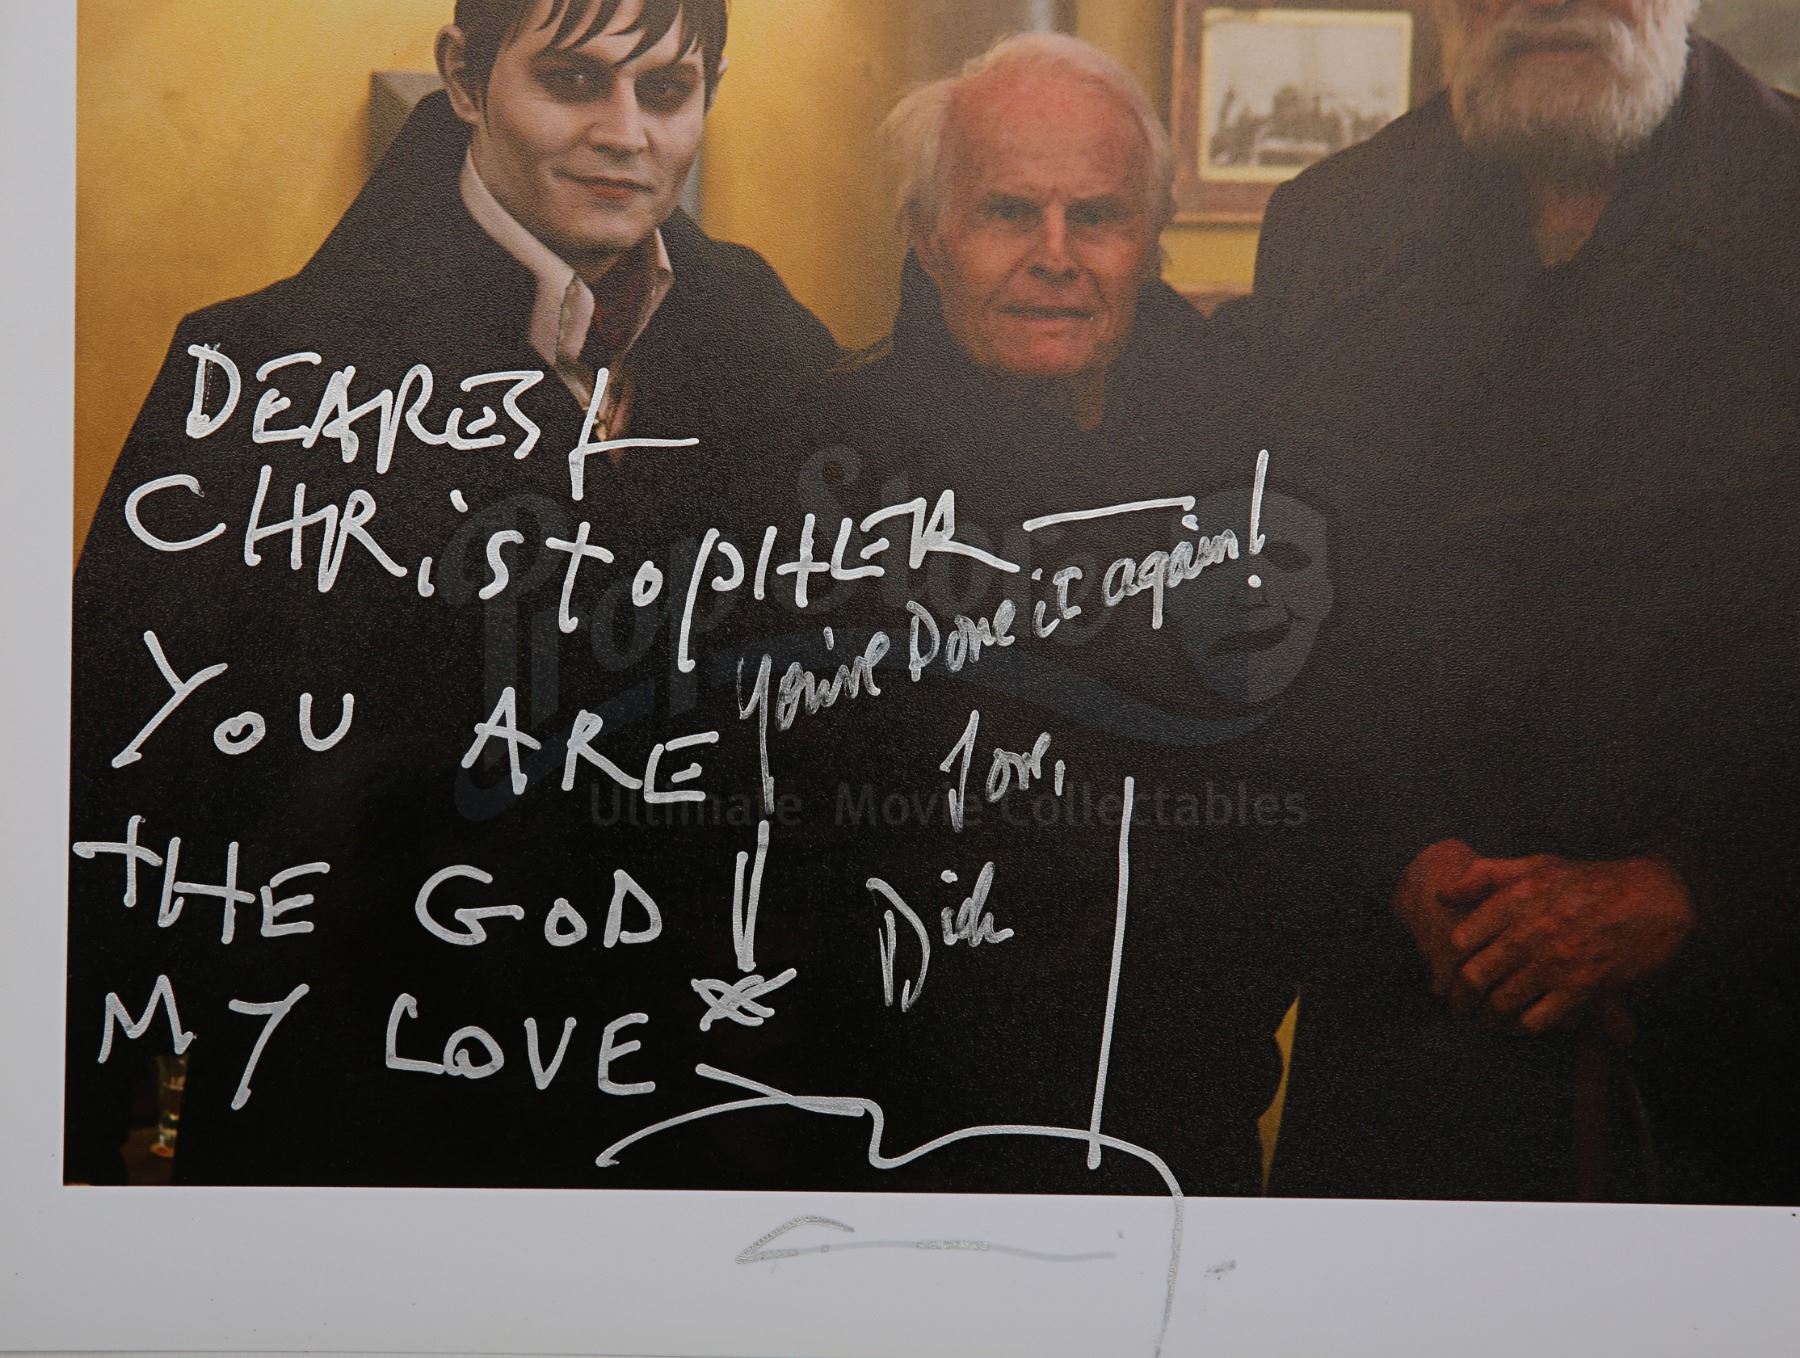 DEAREST
CHRistopHER —
YOU ARE
THE GOD!
MY LOVE
You've Done it again!
Love,
Dick
Prop Store
Ultimate Movie Collectables